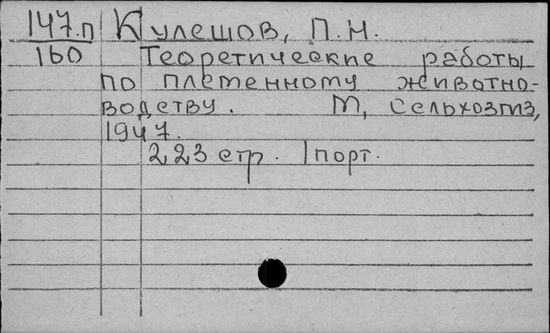 147.п Кулешов, П.Н.
160 Теоретические работы
по племенному животно-
водству. М, Сельхозгиз,
1947.
223 стр. 1 порт.